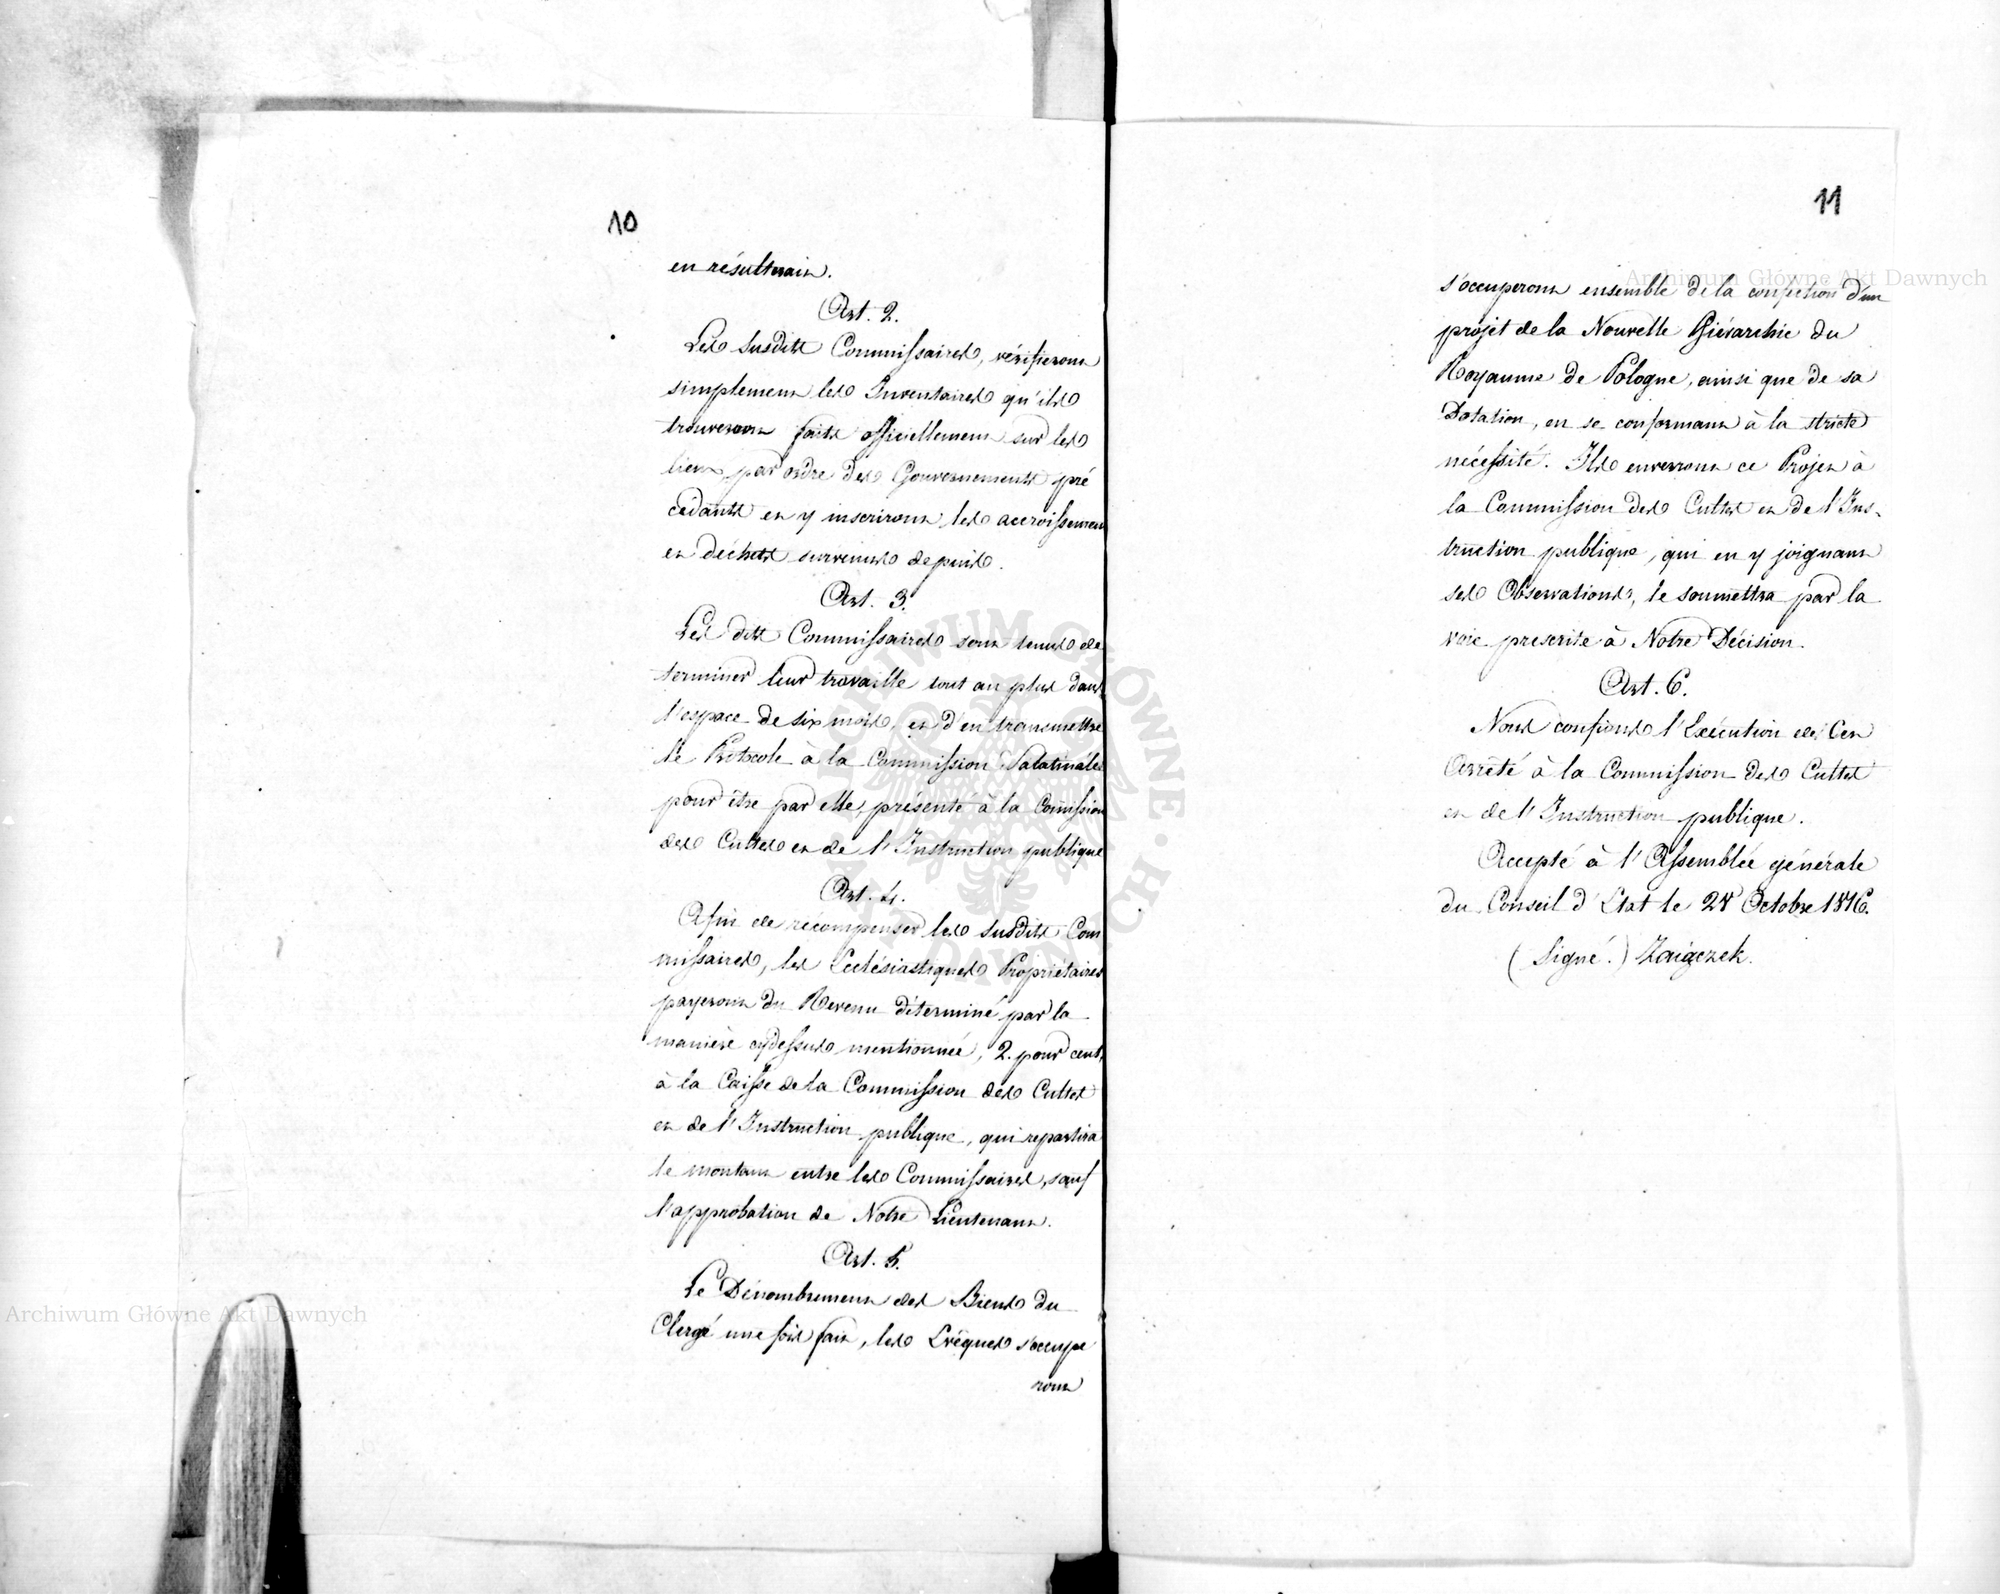 10
en résulterait.
Art. 2.
Les susdits Commissaires, vérifieront
simplement les Inventaires qu'ils
trouveront faits officiellement sur les
lieux par ordre des Gouvernements pré
cédants et y inscriront les accroissemens
et déchets survenus depuis.
Art. 3.
Les dits Commissaires sont tenus de
terminer leur travaille tout au plus dans
l'espace de six mois, et d'en transmettre
le Protocole à la Commission Palatinale
pour être par elle, présenté à la Comission
des Cultes et de l'Instruction publique
Art. 4.
Afin de récompenser les susdits Com
missaires, les Ecclésiastiques Propriétaires
payeront du Revenu déterminé par la
manière cydessus mentionnée, 2. pour cent,
à la Caisse de la Commission des Cultes
et de l'Instruction publique, qui repartira
le montant entre les Commissaires, sauf
l'approbation de Notre Lieutenant.
Art. 5.
Le Dénombrement des Biens du
Clergé une fois fait, les Evêques s'occupe
ront
11
s'occuperont ensemble de la confection d'un
projet de la Nouvelle Hiérarchie du
Royaume de Pologne, ainsi que de sa
Dotation, en se conformant à la stricte
nécessité. Ils enverront ce Projet à
la Commission des Cultes et de l'Ins-
truction publique, qui en y joignant
ses Observations, le soumettra par la
voie prescrite à Notre Décision.
Art. 6.
Nous confions l'Exécution de Cet
Arrêté à la Commission des Cultes
et de l'Instruction publique.
Accepté à l'Assemblée générale
du Conseil d'Etat le 28 Octobre 1816.
(Signé.) Zaiączek.
Archiwum Główne Akt Dawnych
Archiwum Główne Akt Dawnych